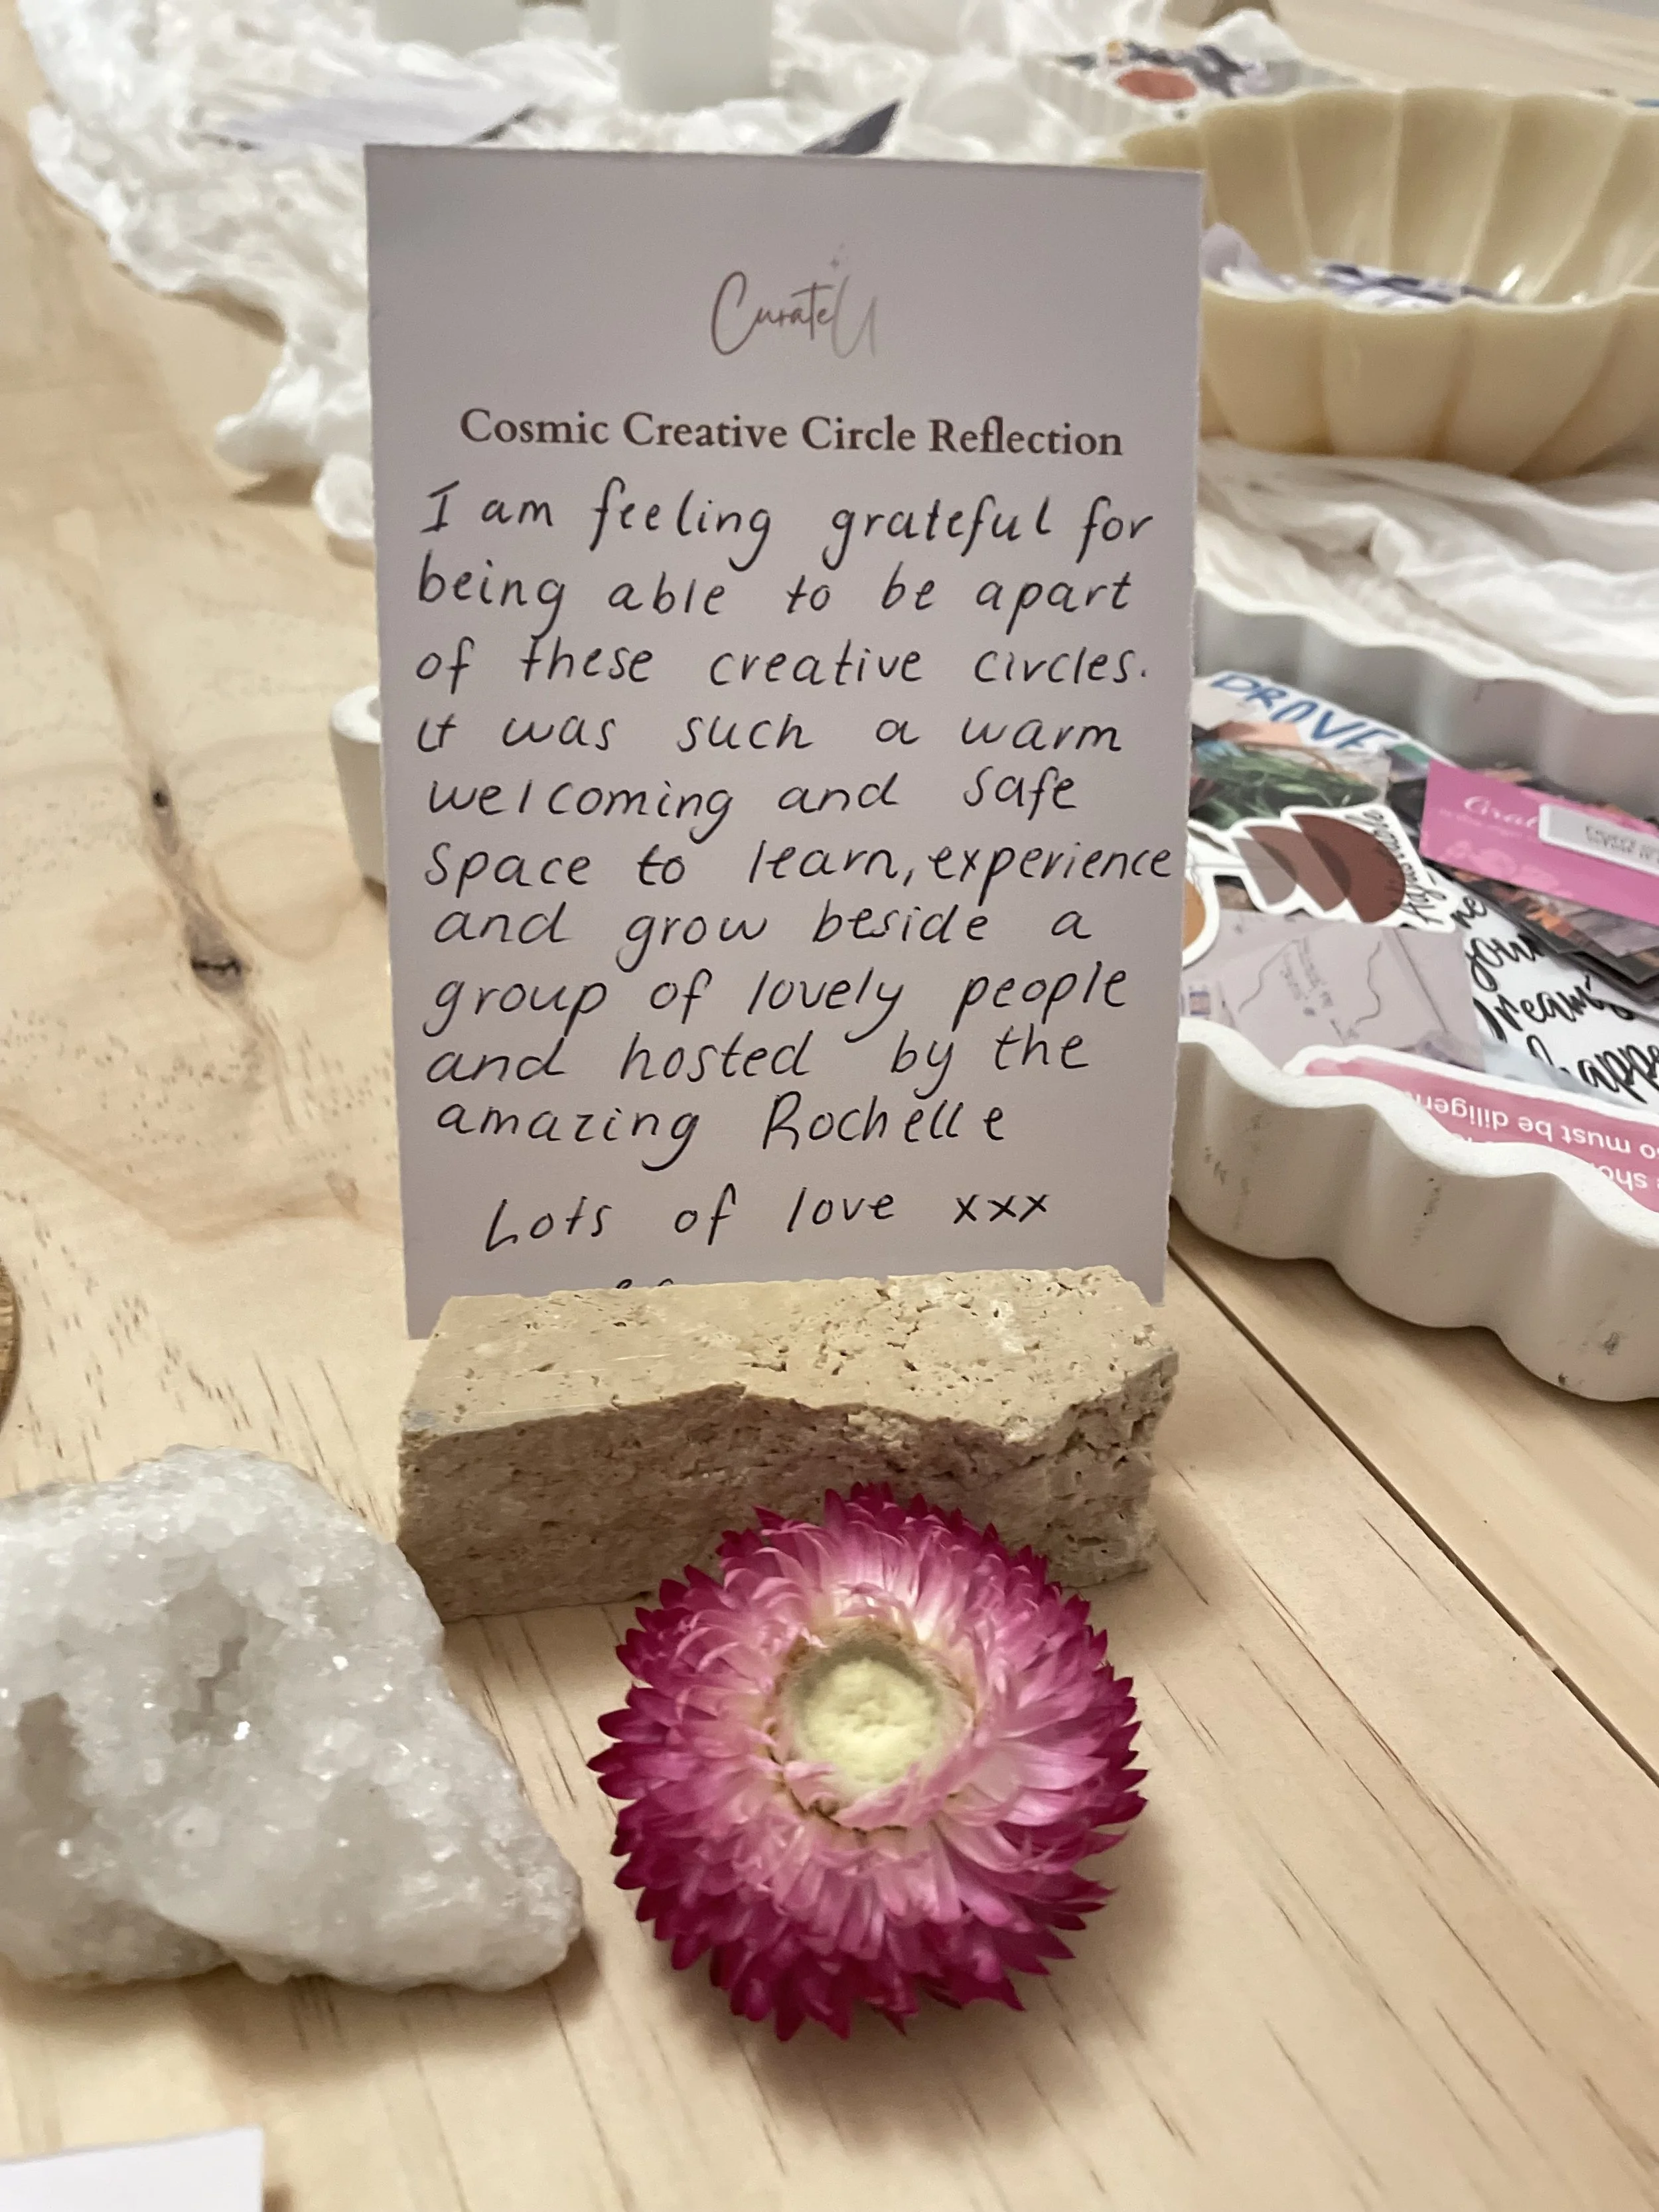 CurateU
Cosmic Creative Circle Reflection
I am feeling grateful for
being able to be apart
of these creative circles.
it was such a warm
welcoming and safe
space to learn, experience
and grow beside a
group of lovely people
and hosted by the
amazing Rochelle
Lots of love xxx
your
Dreams
happe
so must be diligen